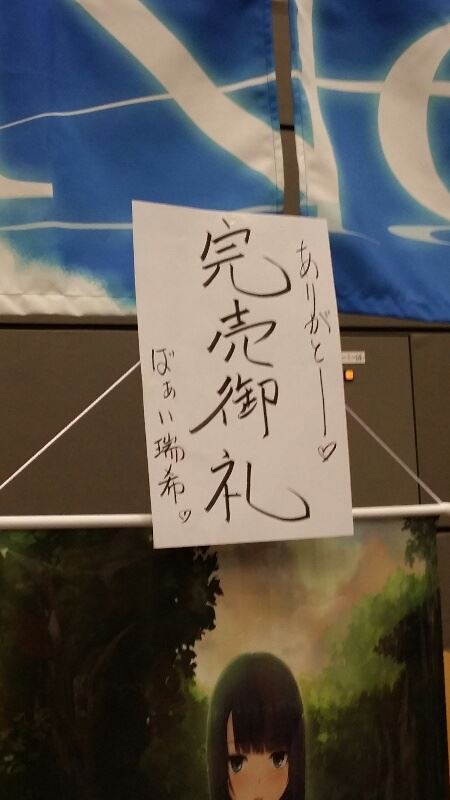 ありがとー♡
完売御礼
ばぁい瑞希♡